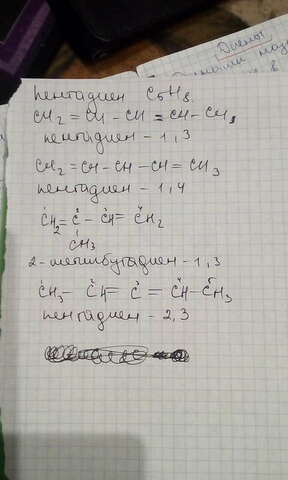 Диены
пентадиен C5H8
CH2=CH-CH=CH-CH3
пентадиен-1,3
CH2=CH-CH-CH=CH3
пентадиен-1,4
1 2 3 4
CH2=C-CH=CH2
CH3
2-метилбутадиен-1,3
1 2 3 4 5
CH3-CH=C=CH-CH3
пентадиен-2,3